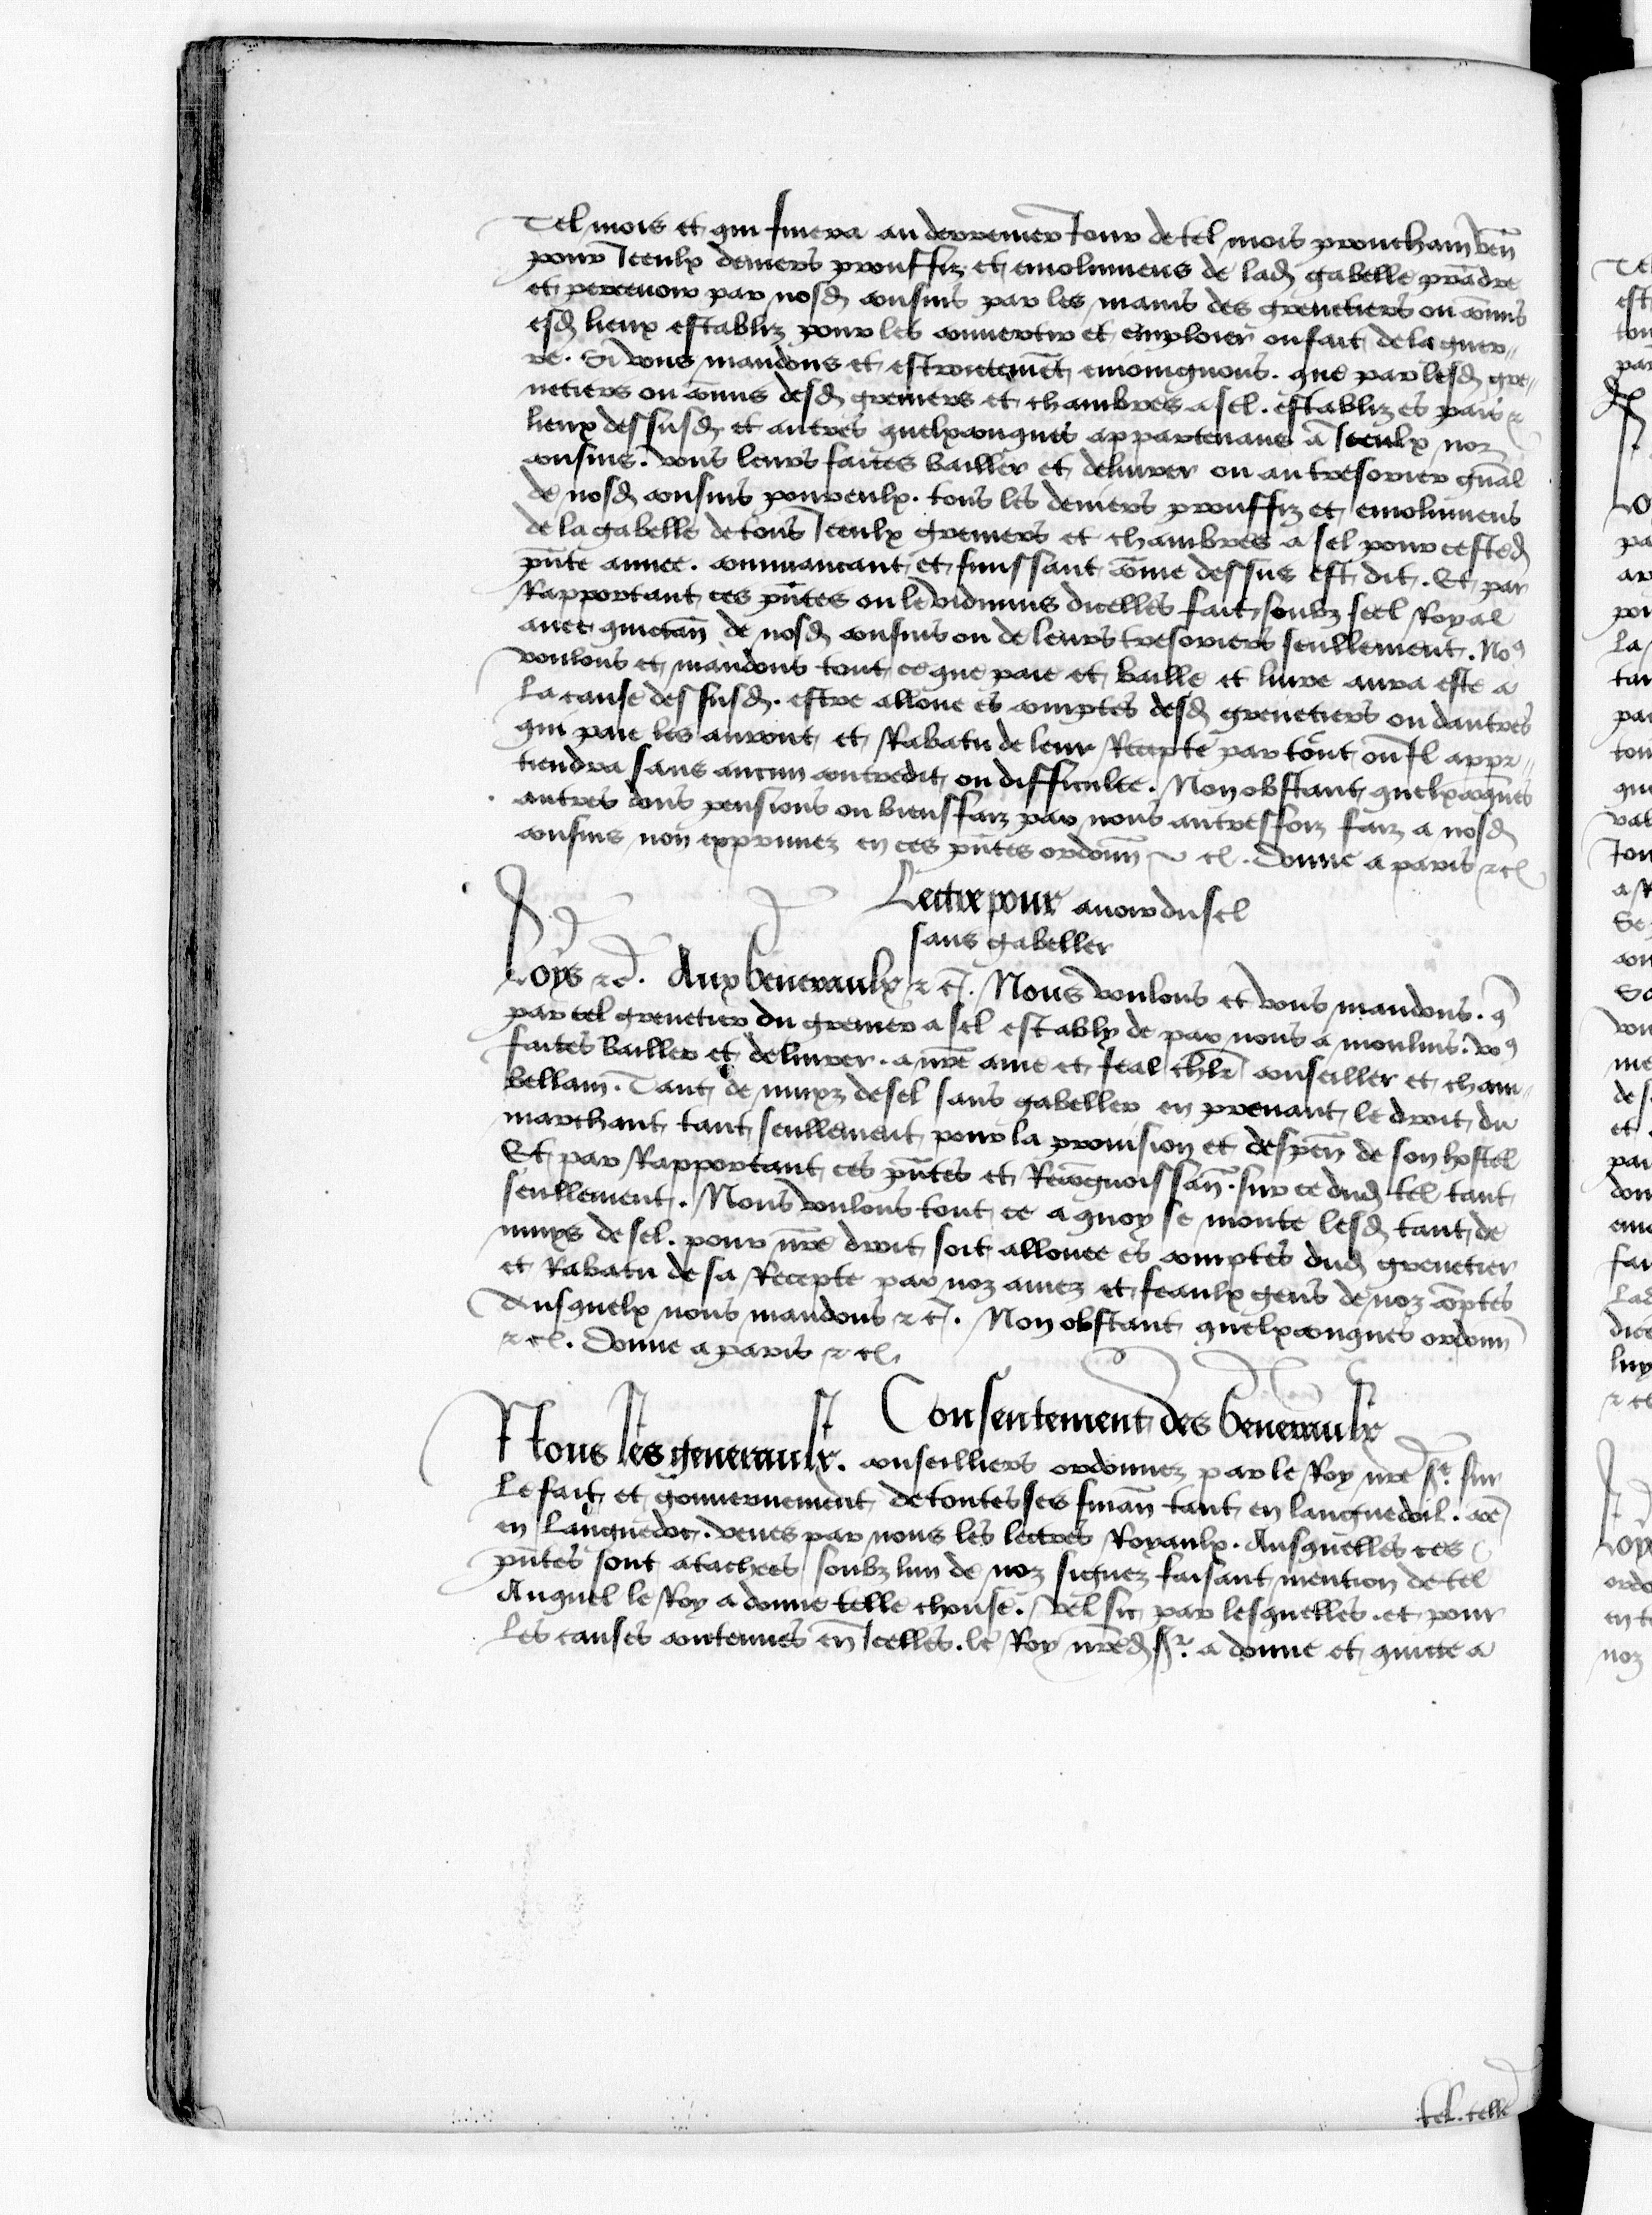 Tel mois et qui finera au derrenier Jour de tel mois prouchain ven̄
pour Iceulx deniers prouffiz et emolumens de lad gabelle prādre
et percevoir par nosd cousins par les mains des grenetiers ou cōmis
esd lieux establiz pour les convertir et emploier ou fait de la guer
re. Si vous mandons et estroictemēt enioingnons. que par lesd gre
netiers ou cōmis desd greniers et chambres a sel. establiz es pais &
lieux dessusd et autres quelxconques appartenans a Iceulx noz
cousins. vous leurs faites bailler et delivrer ou au tresorier gn̄al
de nosd cousins pour eulx. tous les deniers prouffiz et emolumens
de la gabelle de tous Iceulx greniers et chambres a sel pour cested
pn̄te annee. commancant et finissant cōme dessus est dit. Et par
Rapportant ces pn̄tes ou le vidimus dicelles fait soubz seel Royal
avec quictan̄ de nosd cousins ou de leurs tresoriers seullement. Noꝯ
voulons et mandons tout ce que paie et baille et livre aura este a
la cause dessusd. estre alloue es comptes desd grenetiers ou dautres
qui paie les auront et Rabatu de leur Recepte par tout ou Il appar
tiendra sans aucun contredit ou difficulte. Non obstant quelxcōques
autres dons pensions ou biensfaiz par nous autresfoiz faiz a nosd
cousins non exprimez en ces pn̄tes ordonn̄ & cl. Donne a paris & cl
Lectre pour avoir du sel
sans gabeller
Loys & c. Aux generaulx & c. Nous voulons et vous mandons. q̄
par tel grenetier du grenier a sel estably de par nous a moulins. voꝯ
faites bailler et delivrer. a nr̄e ame et feal chlr̄ conseiller et cham
bellam. Tant de muyz de sel sans gabeller en prenant le droit du
marchant tant seullement pour la provision et despen̄ de son hostel
Et par Rapportant ces pn̄tes et Recōgnoissan̄. sur ce dud tel tant
seullement. Nous voulons tout ce a quoy se monte lesd tant de
muys de sel. pour nr̄e droit soit allouee es comptes dud grenetier
et Rabatu de sa Recepte par noz amez et feaulx gens de noz cōptes
Ausquelx nous mandons & c. Non obstant quelxconques ordonn̄
& cl. Donne a paris & cl.
Consentement des generaulx
Nous les generaulx. conseilliers ordonnez par le Roy nr̄e sr. sur
le fait et gouvernement de toutes ses finan̄ tant en languedoil. cōe
en languedoc. veues par nous les lectres Royaulx. Ausquelles ces
pn̄tes sont atachees soubz lun de noz signez faisant mention de tel
Auquel le Roy a donne telle chouse. vel sic par lesquelles. et pour
les causes contenues en Icelles. le Roy nr̄ed sr. a donne et quicte a
tel. telle